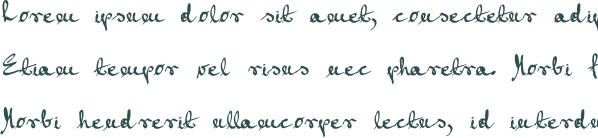 Lorem ipsum dolor sit amet, consectetur adip
Etiam tempor vel risus nec pharetra. Morbi f
Morbi hendrerit ullamcorper lectus, id interdu